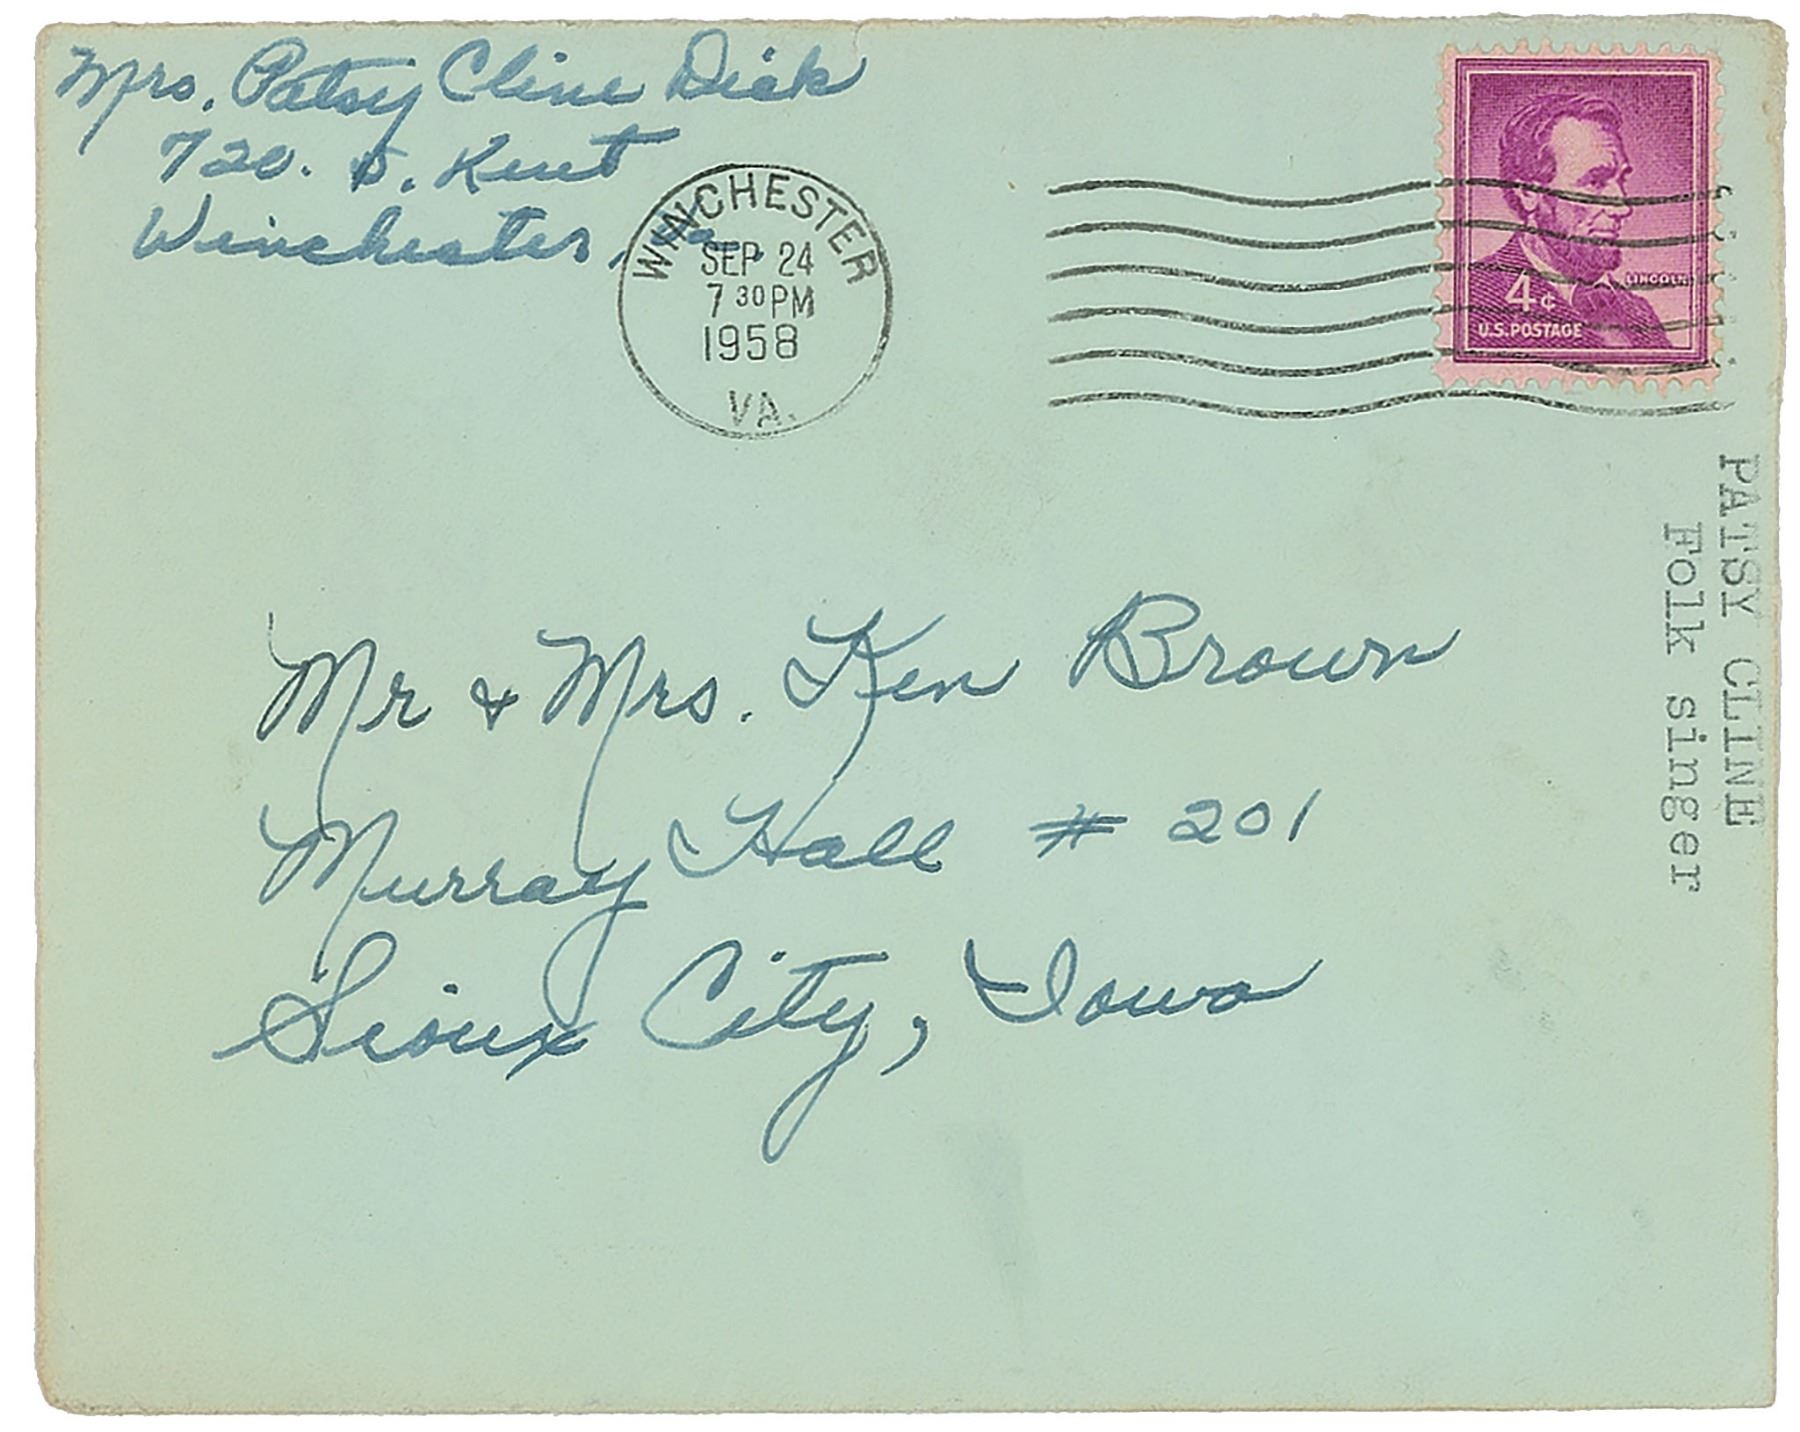 Mrs. Patsy Cline Dick
720. S. Kent
Winchester, Va.
WINCHESTER
SEP 24
7 30 PM
1958
VA.
LINCOLN
4¢
U.S. POSTAGE
PATSY CLINE
Folk singer
Mr & Mrs. Ken Brown
Murray Hall # 201
Sioux City, Iowa